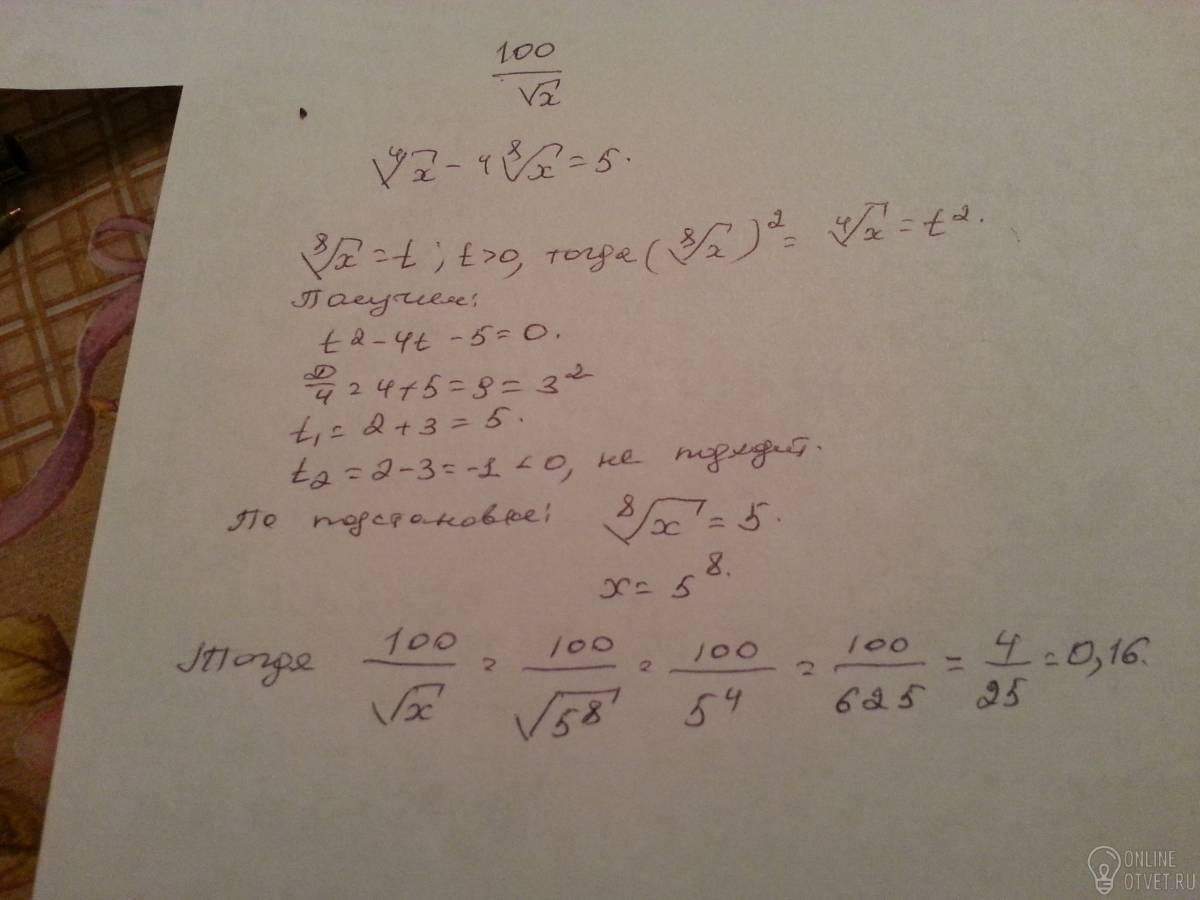 100/√x
⁴√x - 4 ⁸√x = 5.
⁸√x = t; t>0, тогда (⁸√x)² = ⁴√x = t².
Получим:
t² - 4t - 5 = 0.
D/4 = 4 + 5 = 9 = 3²
t₁ = 2 + 3 = 5.
t₂ = 2 - 3 = -1 < 0, не подходит.
По подстановке: ⁸√x = 5.
x = 5⁸.
Тогда 100/√x = 100/√5⁸ = 100/5⁴ = 100/625 = 4/25 = 0,16.
ONLINE
OTVET.RU